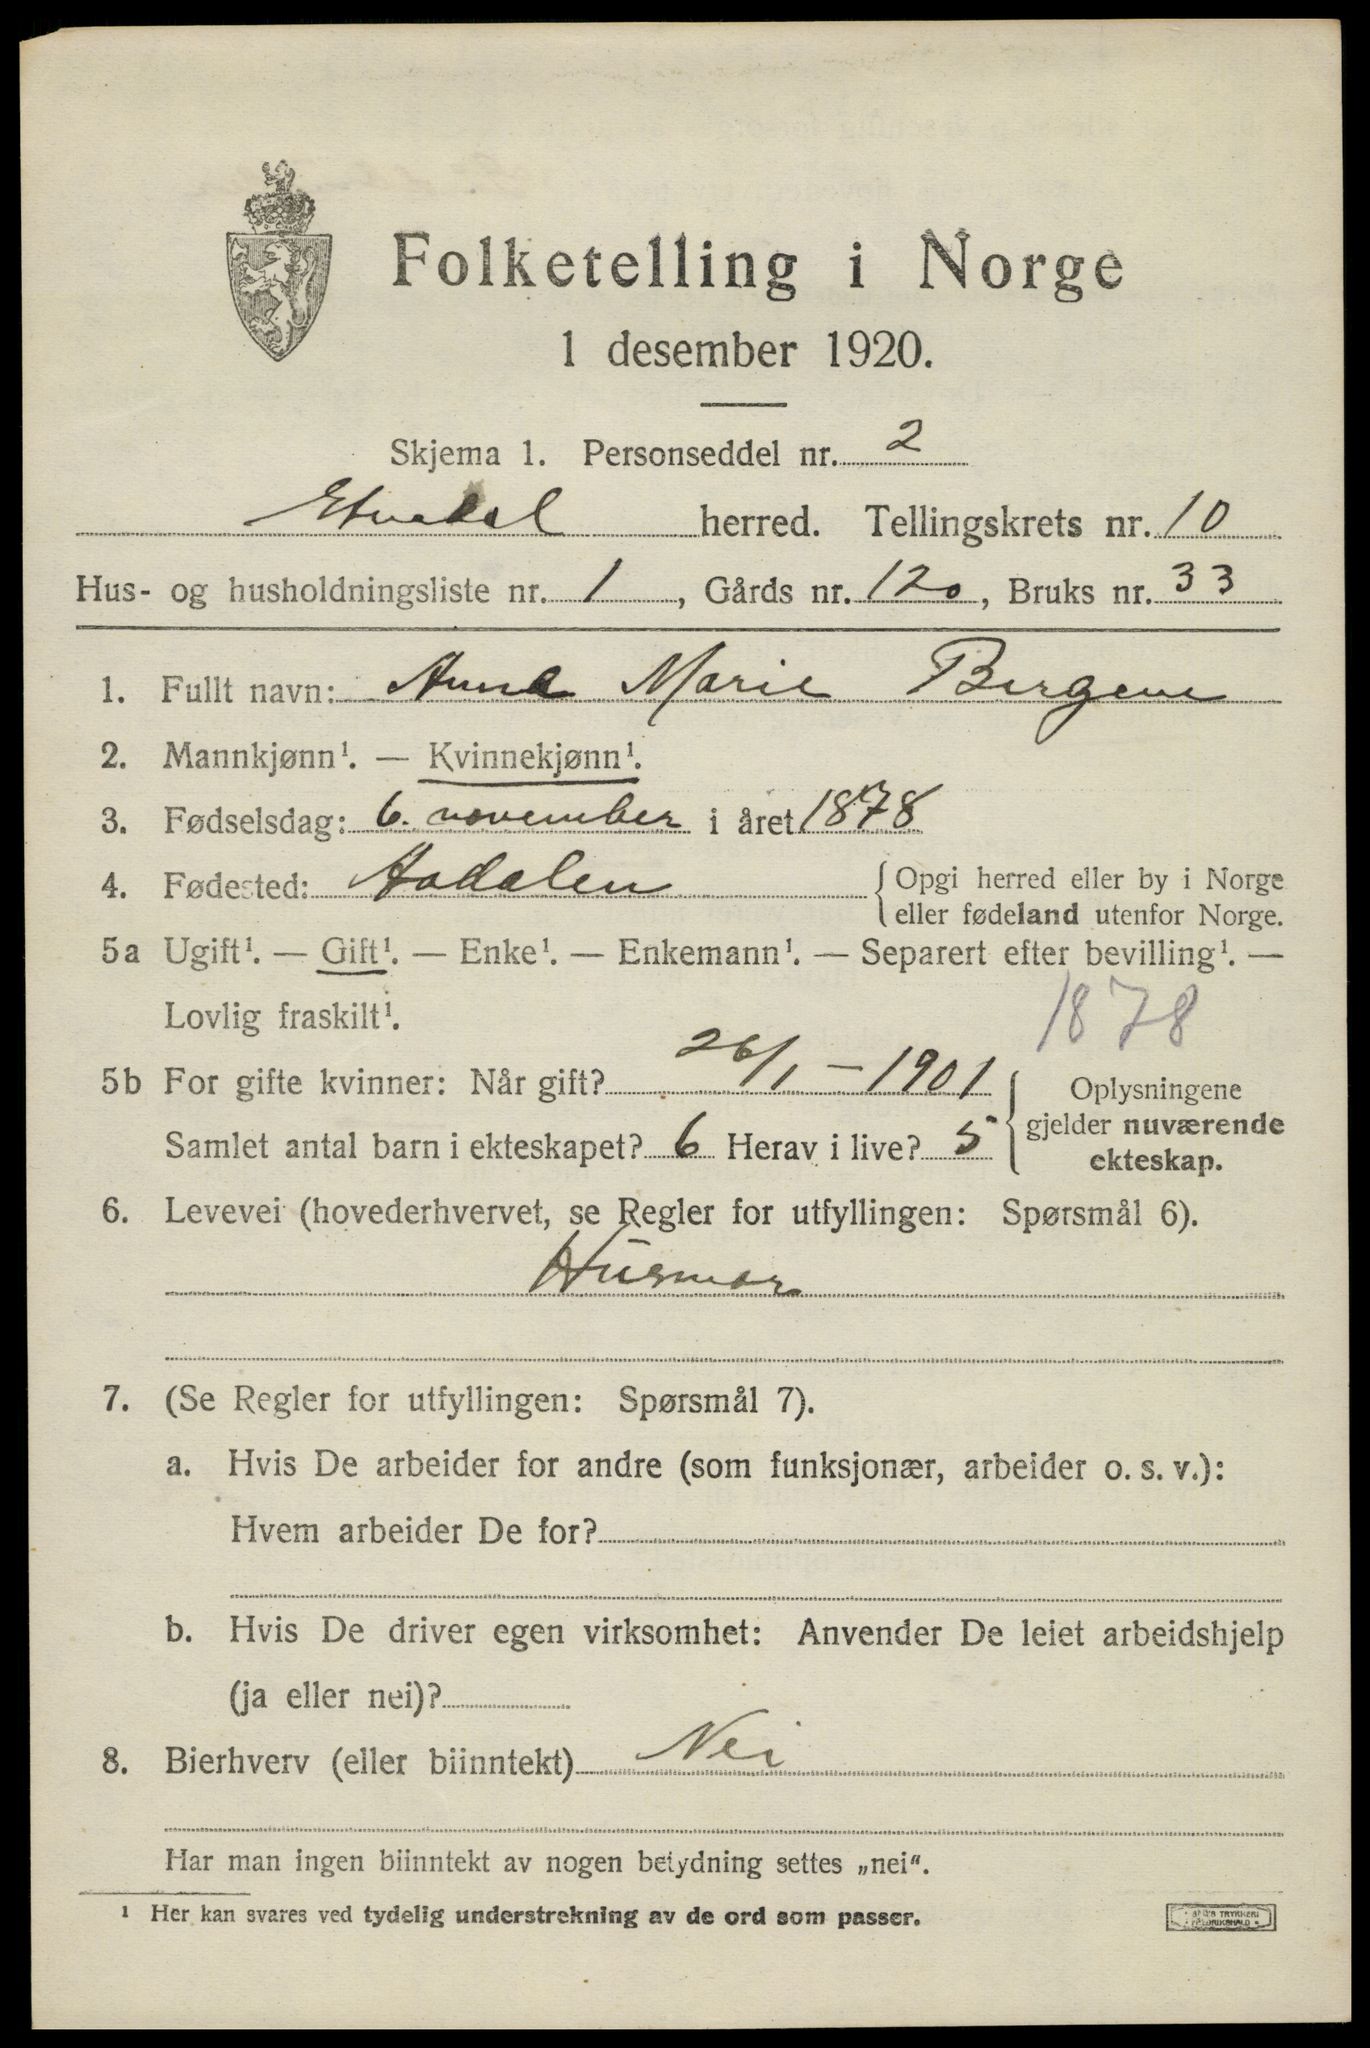 Folketelling i Norge
1 desember 1920.
Skjema 1. Personseddel nr. 2
Etnedal herred. Tellingskrets nr. 10
Hus- og husholdningsliste nr. 1, Gårds nr. 120, Bruks nr. 33
1. Fullt navn: Anna Marie Bergene
2. Mannkjønn¹. — Kvinnekjønn¹.
3. Fødselsdag: 6. november i året 1878
4. Fødested: Aadalen {Opgi herred eller by i Norge
eller fødeland utenfor Norge.
5a Ugift¹. — Gift¹. — Enke¹. — Enkemann¹. — Separert efter bevilling¹. —
Lovlig fraskilt¹. 1878
5b For gifte kvinner: Når gift? 26/1 - 1901 Oplysningene
Samlet antal barn i ekteskapet? 6 Herav i live? 5 gjelder nuværende
ekteskap.
6. Levevei (hovederhvervet, se Regler for utfyllingen: Spørsmål 6).
Husmor
7. (Se Regler for utfyllingen: Spørsmål 7).
a. Hvis De arbeider for andre (som funksjonær, arbeider o. s. v.):
Hvem arbeider De for?
b. Hvis De driver egen virksomhet: Anvender De leiet arbeidshjelp
(ja eller nei)?
8. Bierhverv (eller biinntekt) Nei
Har man ingen biinntekt av nogen betydning settes „nei".
¹ Her kan svares ved tydelig understrekning av de ord som passer.
TRYKKERI
FREDRIKSHALD